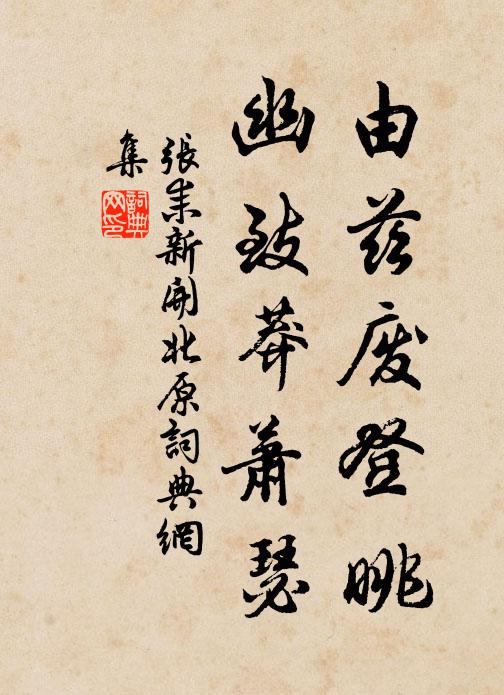 由茲废登眺
幽致莽萧瑟
張耒新開北原詞典網
集
詞典
网印